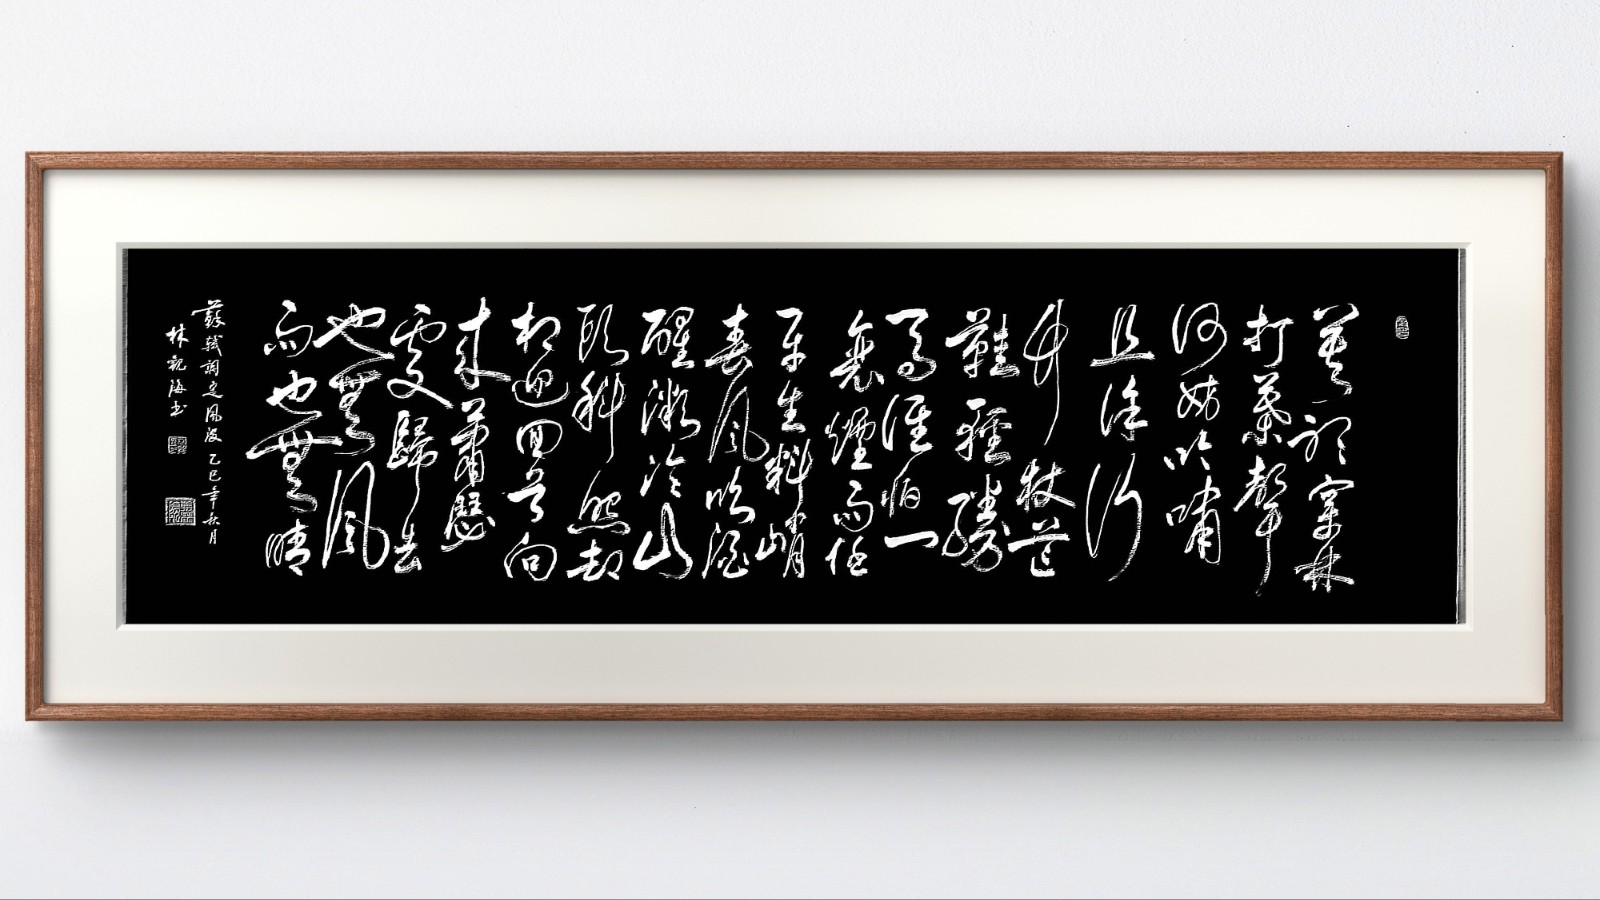 莫聽穿林
打葉聲
何妨吟嘯
且徐行
竹杖芒
鞋輕勝
馬誰怕一
蓑煙雨任
平生料峭
春風吹酒
醒微冷山
頭斜照却
相迎回首向
來蕭瑟
處歸去
也無風
雨也無晴
蘇軾詞定風波 乙巳年秋月
林海书